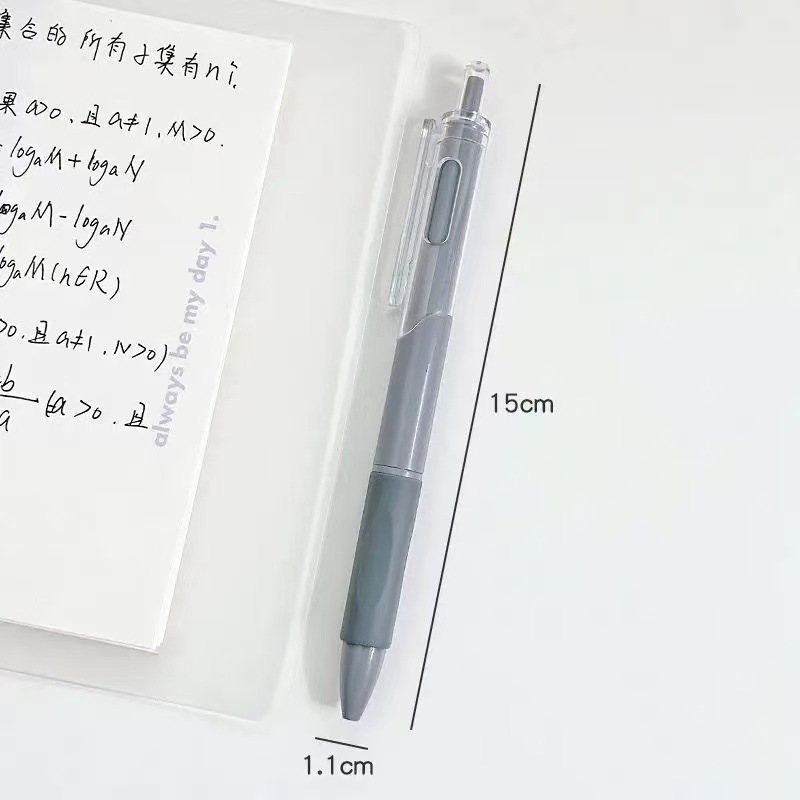 集合的所有子集有n个.
果a>0,且a≠1,M>0.
=logaM+logaN
logaM-logaN
logaM(n∈R)
>0.且a≠1,N>0)
b
a (a>0.且
always be my day 1.
15cm
1.1cm